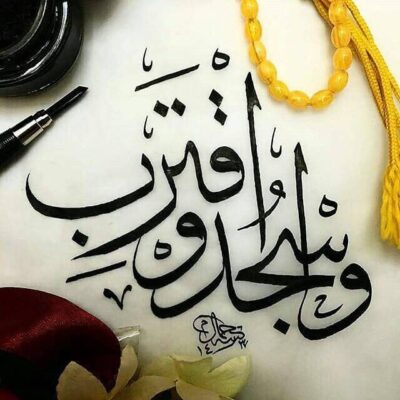 وَاسْجُدْ وَاقْتَرِبْ